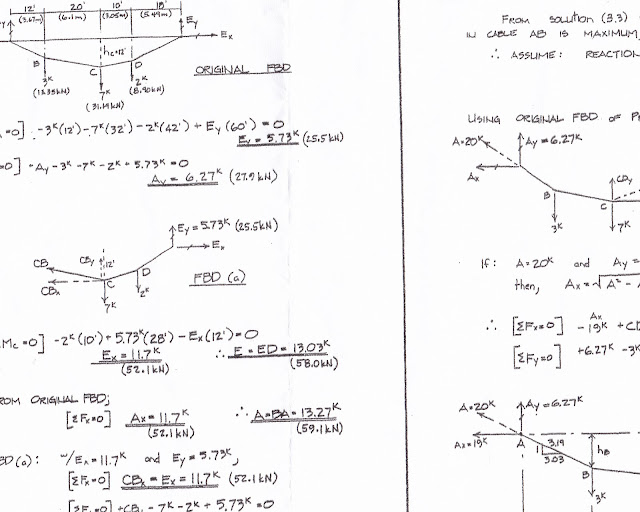 12' 20' 10' 18'
(3.67m) (6.1m) (3.05m) (5.49m)
Ey
Ex
hc=12'
B C D
3ᴷ 7ᴷ 2ᴷ
(13.35kN) (31.14kN) (8.90kN)
ORIGINAL FBD
=0] -3ᴷ(12') -7ᴷ(32') -2ᴷ(42') + Ey(60') = 0
Ey = 5.73ᴷ (25.5kN)
=0] +Ay -3ᴷ -7ᴷ -2ᴷ + 5.73ᴷ = 0
Ay = 6.27ᴷ (27.9kN)
Ey = 5.73ᴷ (25.5kN)
Ex
CB CBy 12'
CBx C D
7ᴷ 2ᴷ
FBD (a)
Mc=0] -2ᴷ(10') + 5.73ᴷ(28') - Ex(12') = 0
Ex = 11.7ᴷ ∴ E = ED = 13.03ᴷ
(52.1kN) (58.0kN)
ROM ORIGINAL FBD;
[ΣFx=0] Ax = 11.7ᴷ ∴ A=BA= 13.27ᴷ
(52.1kN) (59.1kN)
BD(a): w/Ex = 11.7ᴷ and Ey = 5.73ᴷ,
[ΣFx=0] CBx = Ex = 11.7ᴷ (52.1kN)
+CBy - 7ᴷ - 2ᴷ + 5.73ᴷ = 0
FROM SOLUTION (3.3)
IN CABLE AB IS MAXIMUM,
∴ ASSUME: REACTION
USING ORIGINAL FBD OF
A=20ᴷ Ay=6.27ᴷ
Ax
B C CDy
3ᴷ 7ᴷ
If: A=20ᴷ and Ay =
then, Ax = √A² - A
∴ [ΣFx=0] Ax
-19ᴷ +CD
[ΣFy=0] +6.27ᴷ -3ᴷ
A=20ᴷ Ay=6.27ᴷ
Ax=19ᴷ A 1 3.19
3.03
hB
B
3ᴷ